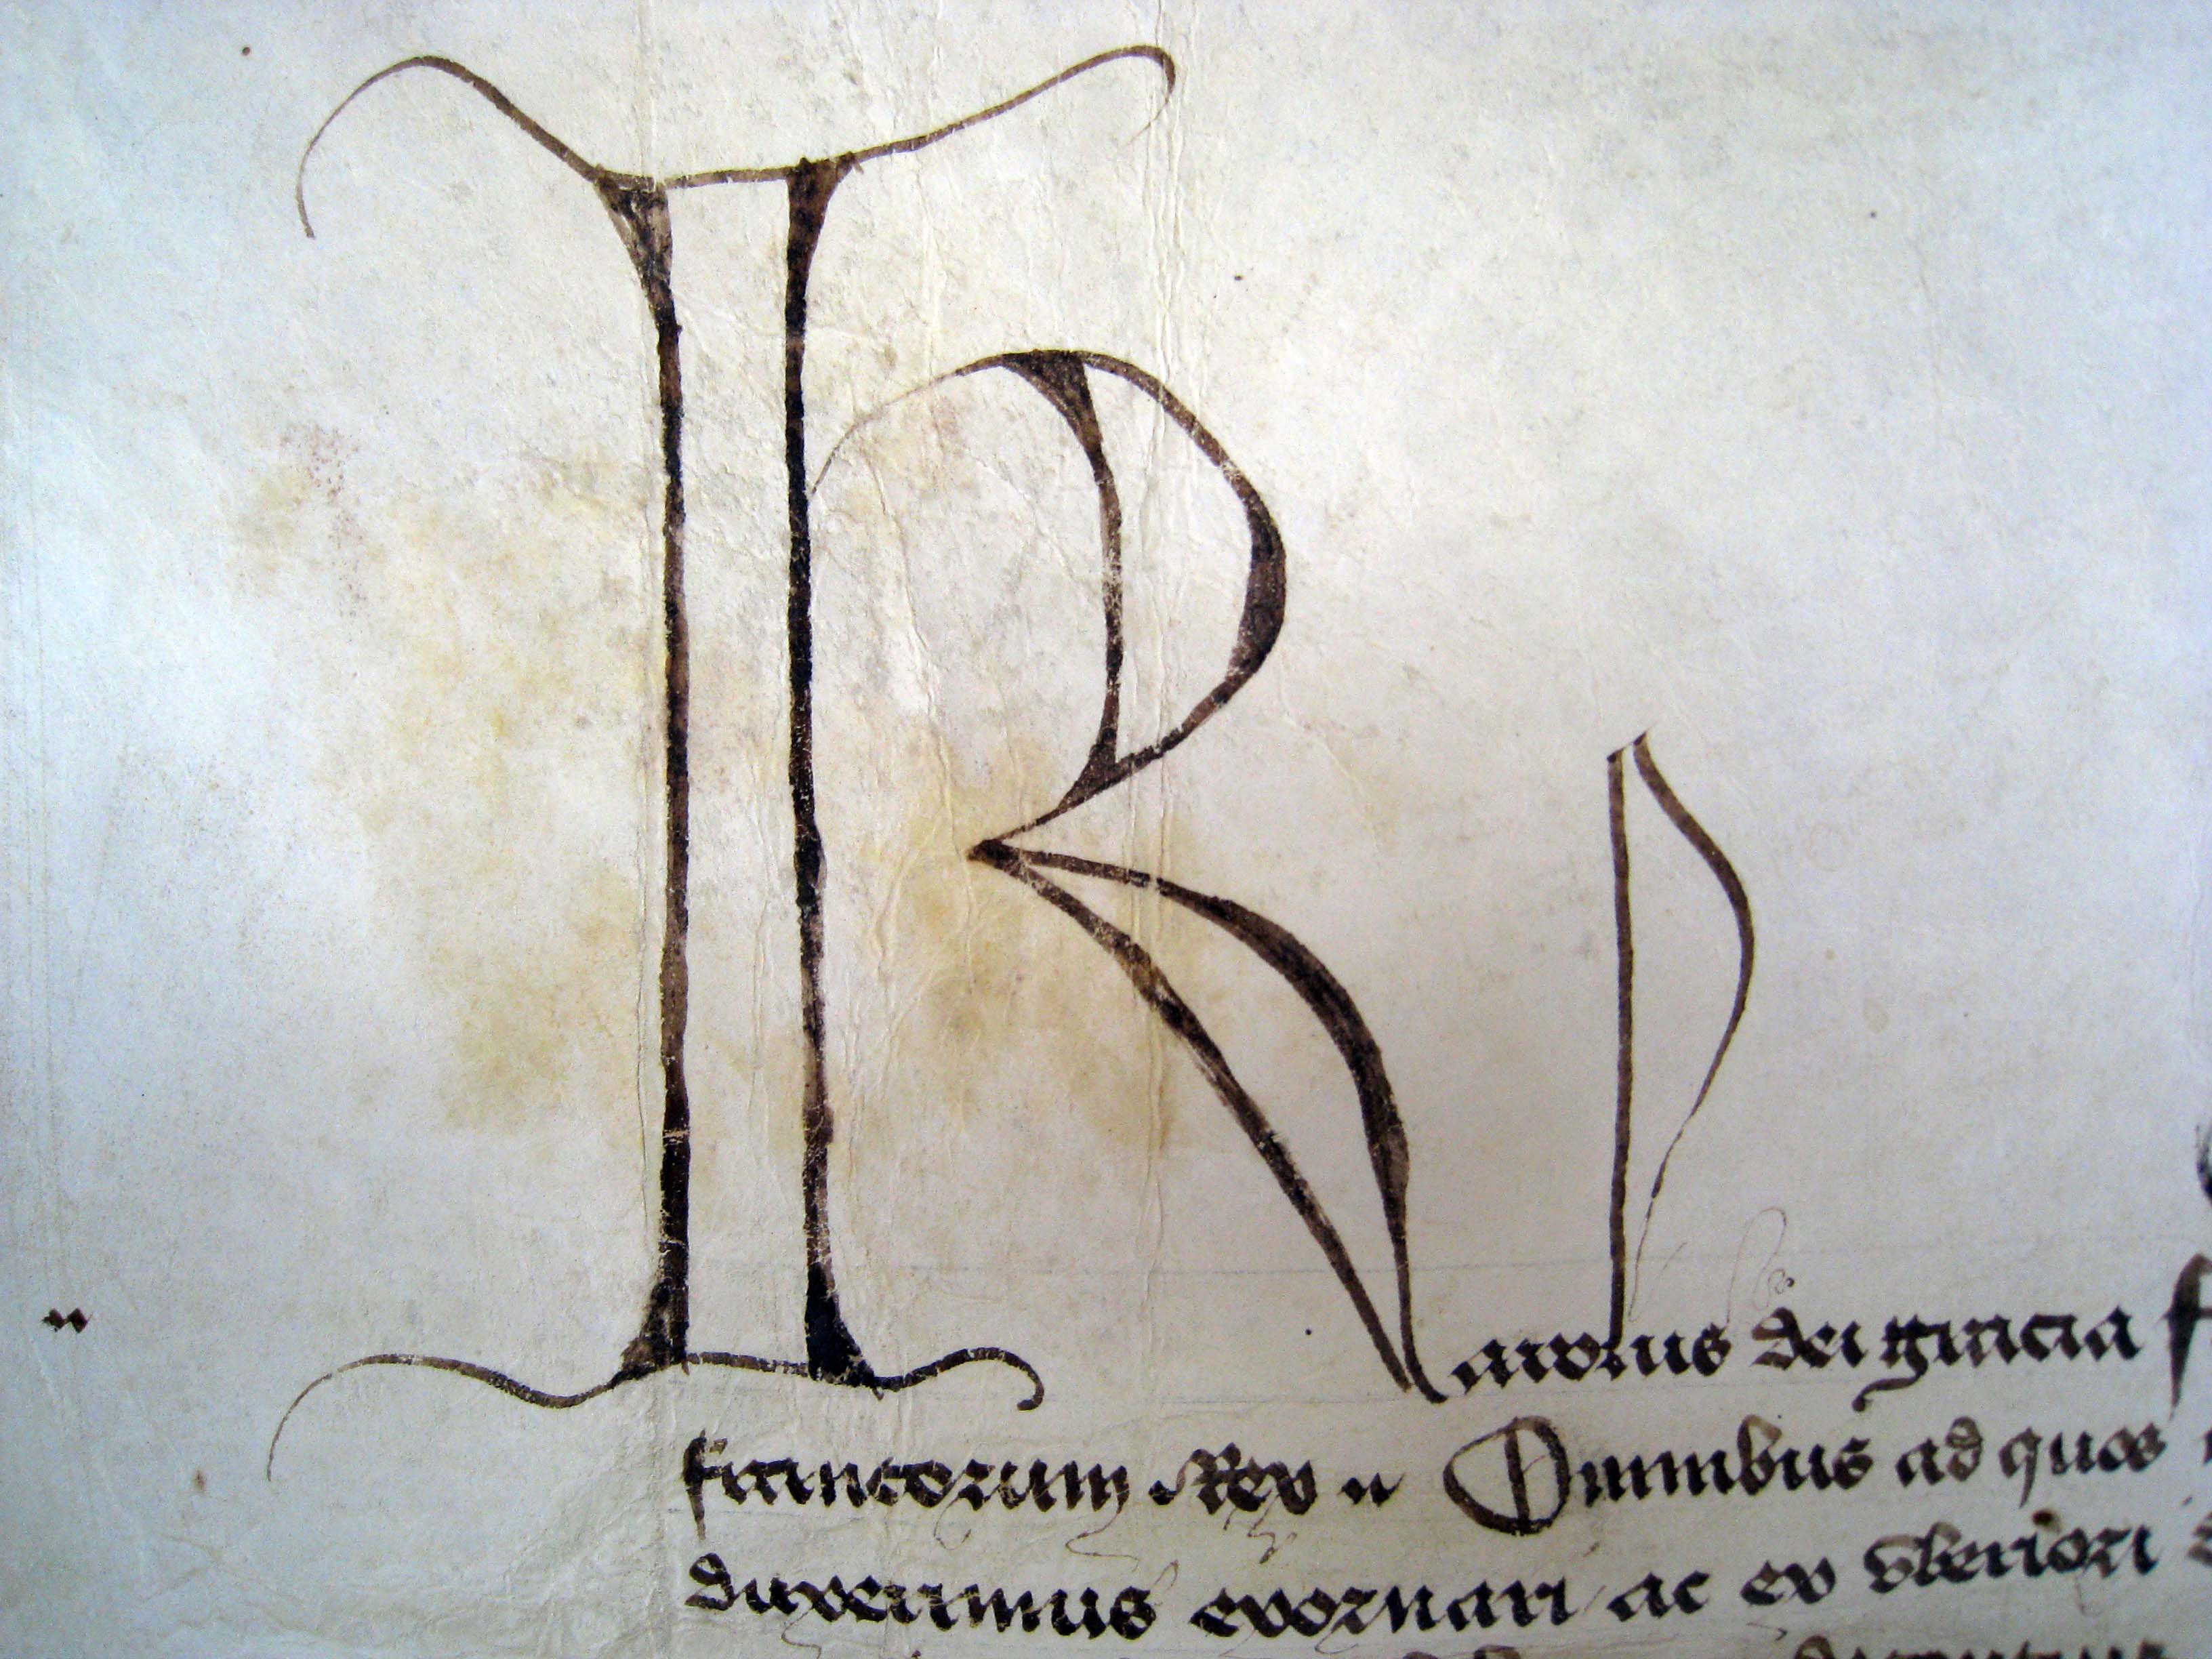 Karolus dei gracia
francorum Rex Omnibus ad quos
duxerimus exornari ac ex vberiori